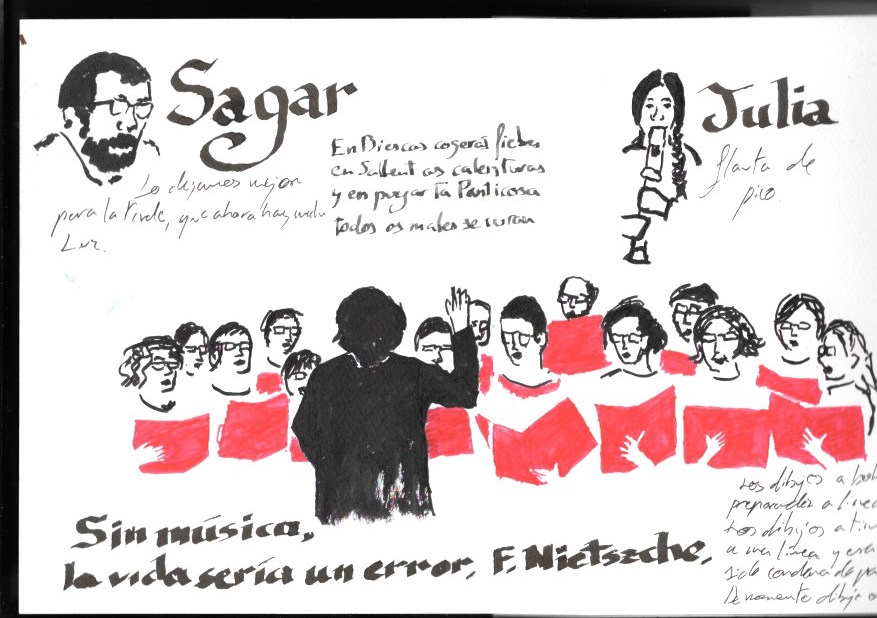 Sagar
Lo dejamos mejor
para la tarde, que ahora hay mala
Luz.
En Biescas cogerás fiebres
en Sallent as calenturas
y en purgar ta Panticosa
todos os males se curan
Julia
flauta de
pico.
Sin música,
la vida sería un error, F. Nietszche.
Los dibujos a
preparados a línea
Los dibujos a
a una línea y
de
De momento dibujo